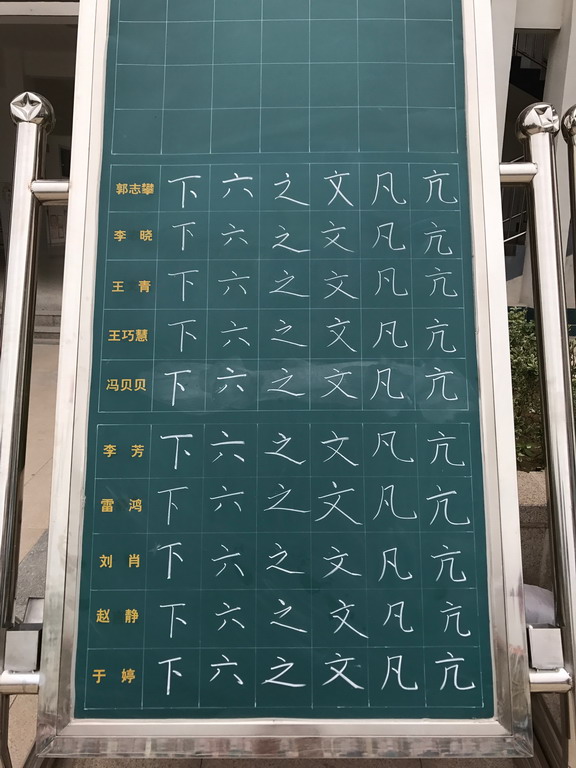 郭志攀 下 六 之 文 凡 亢
李 晓 下 六 之 文 凡 亢
王 青 下 六 之 文 凡 亢
王巧慧 下 六 之 文 凡 亢
冯贝贝 下 六 之 文 凡 亢
李 芳 下 六 之 文 凡 亢
雷 鸿 下 六 之 文 凡 亢
刘 肖 下 六 之 文 凡 亢
赵 静 下 六 之 文 凡 亢
于 婷 下 六 之 文 凡 亢